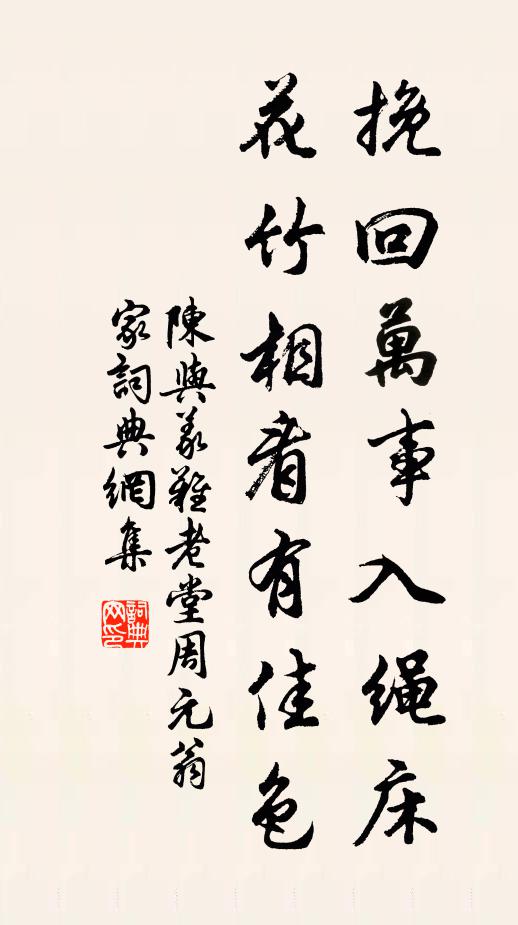 挽回萬事入绳床
花竹相看有佳色
陳與義難老堂周元翁
家詞典網集
詞典
网印